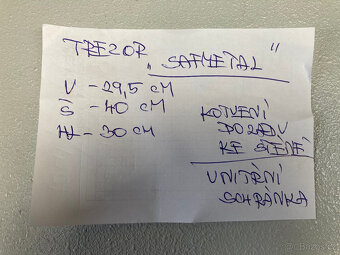 TREZOR
„SAFMETAL"
V - 29,5 CM
Š - 40 CM
H - 30 CM
KOTVENÍ
POZADU
KE STĚNĚ
VNITŘNÍ
SCHRÁNKA